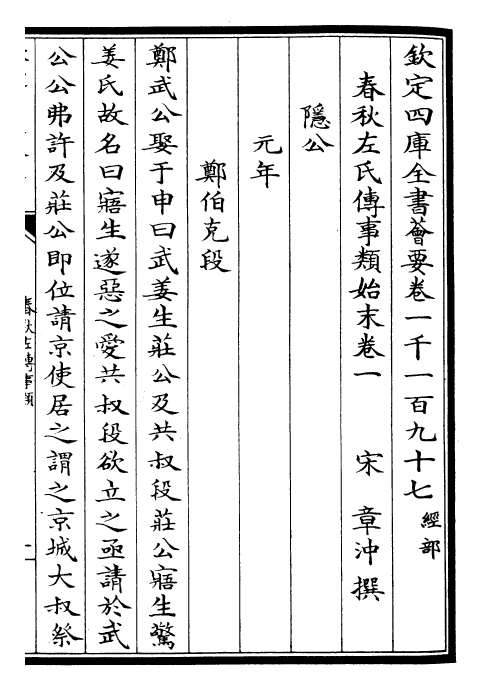 欽定四庫全書薈要卷一千一百九十七 經部
春秋左氏傳事類始末卷一 宋 章沖 撰
隱公
元年
鄭伯克段
鄭武公娶于申曰武姜生莊公及共叔段莊公寤生驚
姜氏故名曰寤生遂惡之愛共叔段欲立之亟請於武
公公弗許及莊公即位請京使居之謂之京城大叔祭
春秋左傳事類